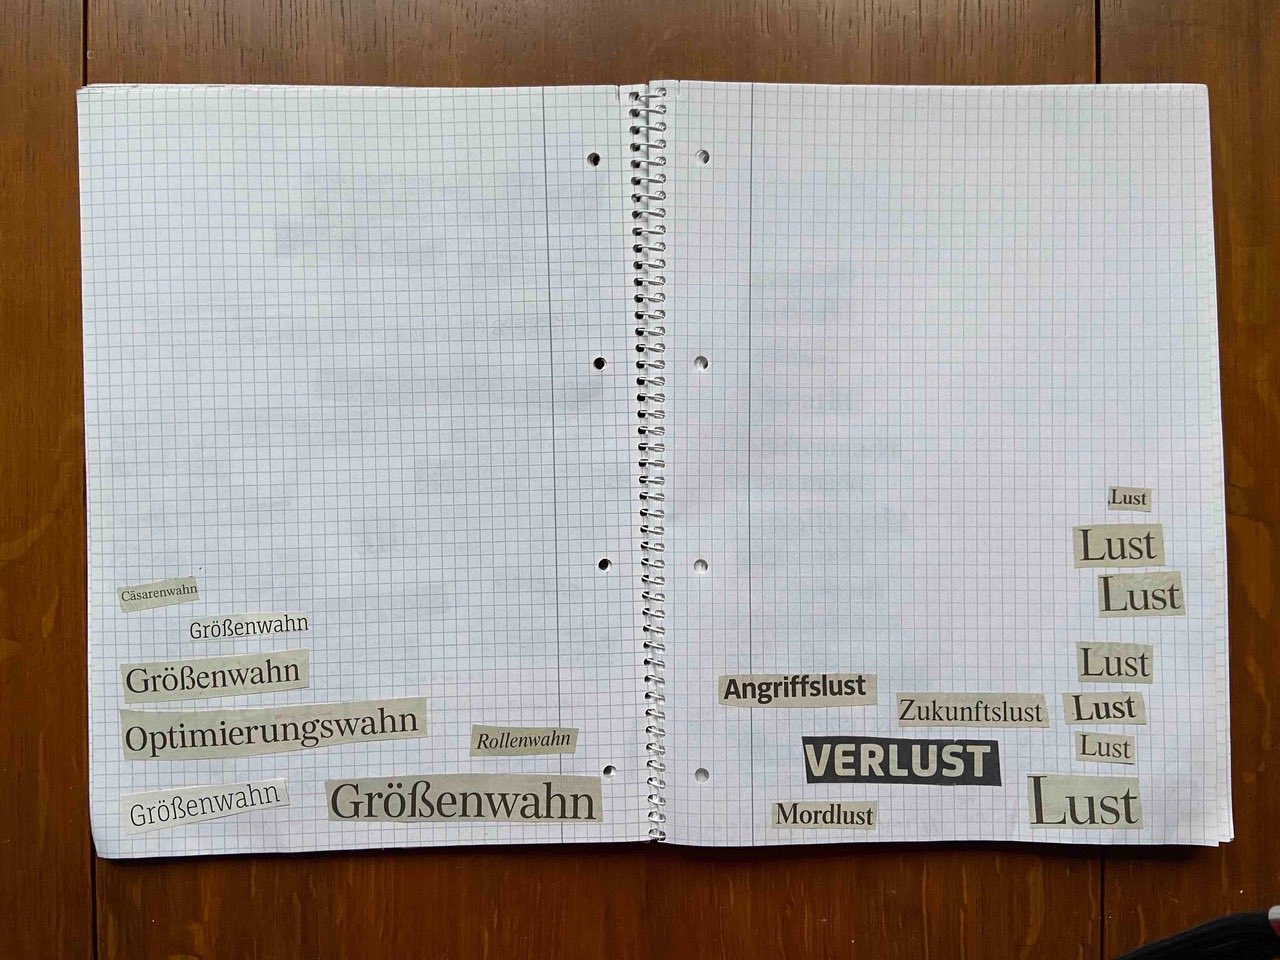 Cäsarenwahn
Größenwahn
Größenwahn
Optimierungswahn
Rollenwahn
Größenwahn
Größenwahn
Lust
Lust
Lust
Lust
Angriffslust
Zukunftslust
Lust
VERLUST
Lust
Mordlust
Lust